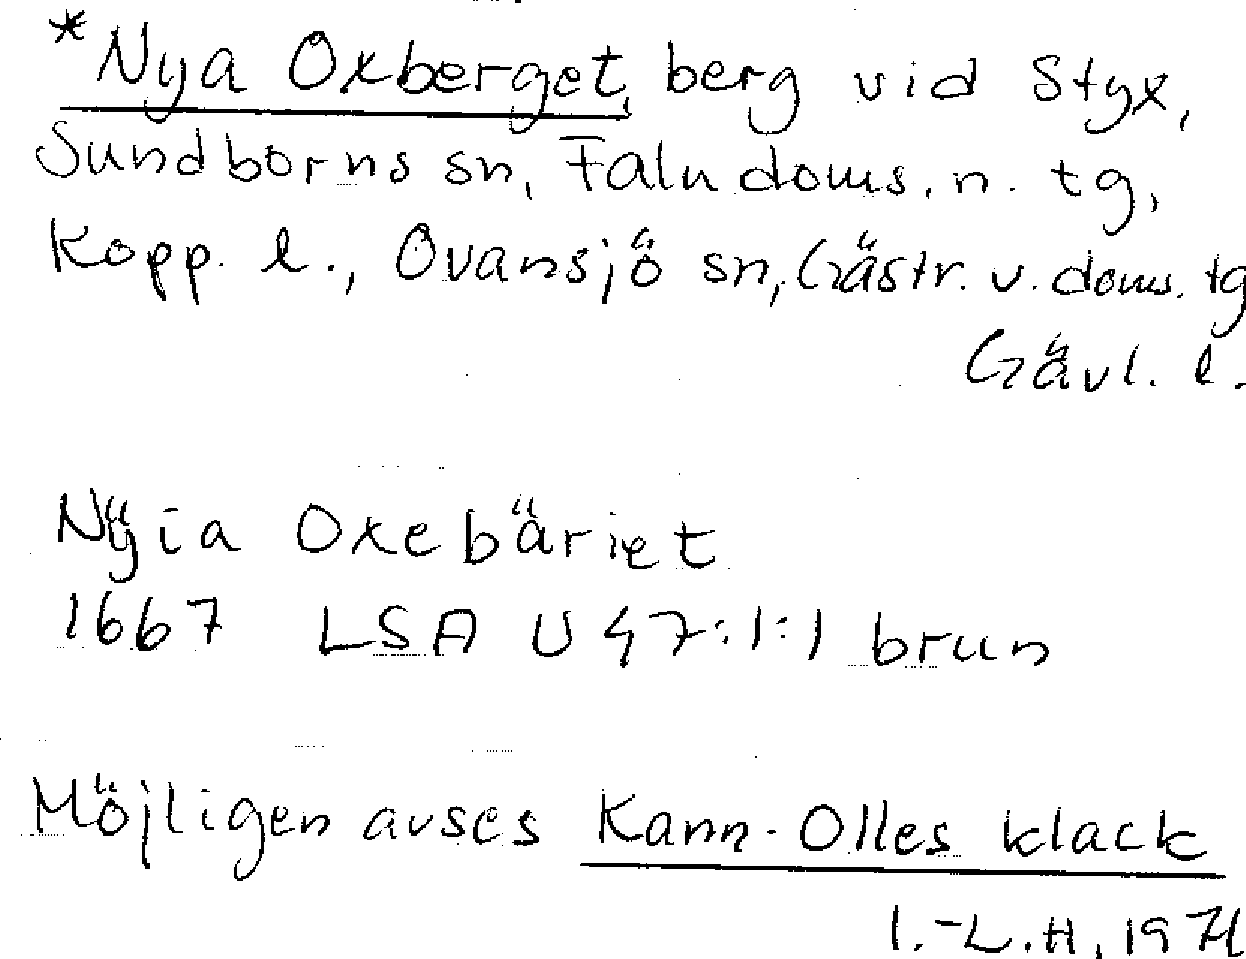 *Nya Oxberget, berg vid Styx,
Sundborns sn, Falu doms. n. tg,
Kopp. l., Ovansjö sn, Gästr. v. doms. tg
Gävl. l.
Nÿia Oxebäriet
1667 LSA U 47:1:1 brun
Möjligen avses Kann-Olles klack
I.-L.H, 1971